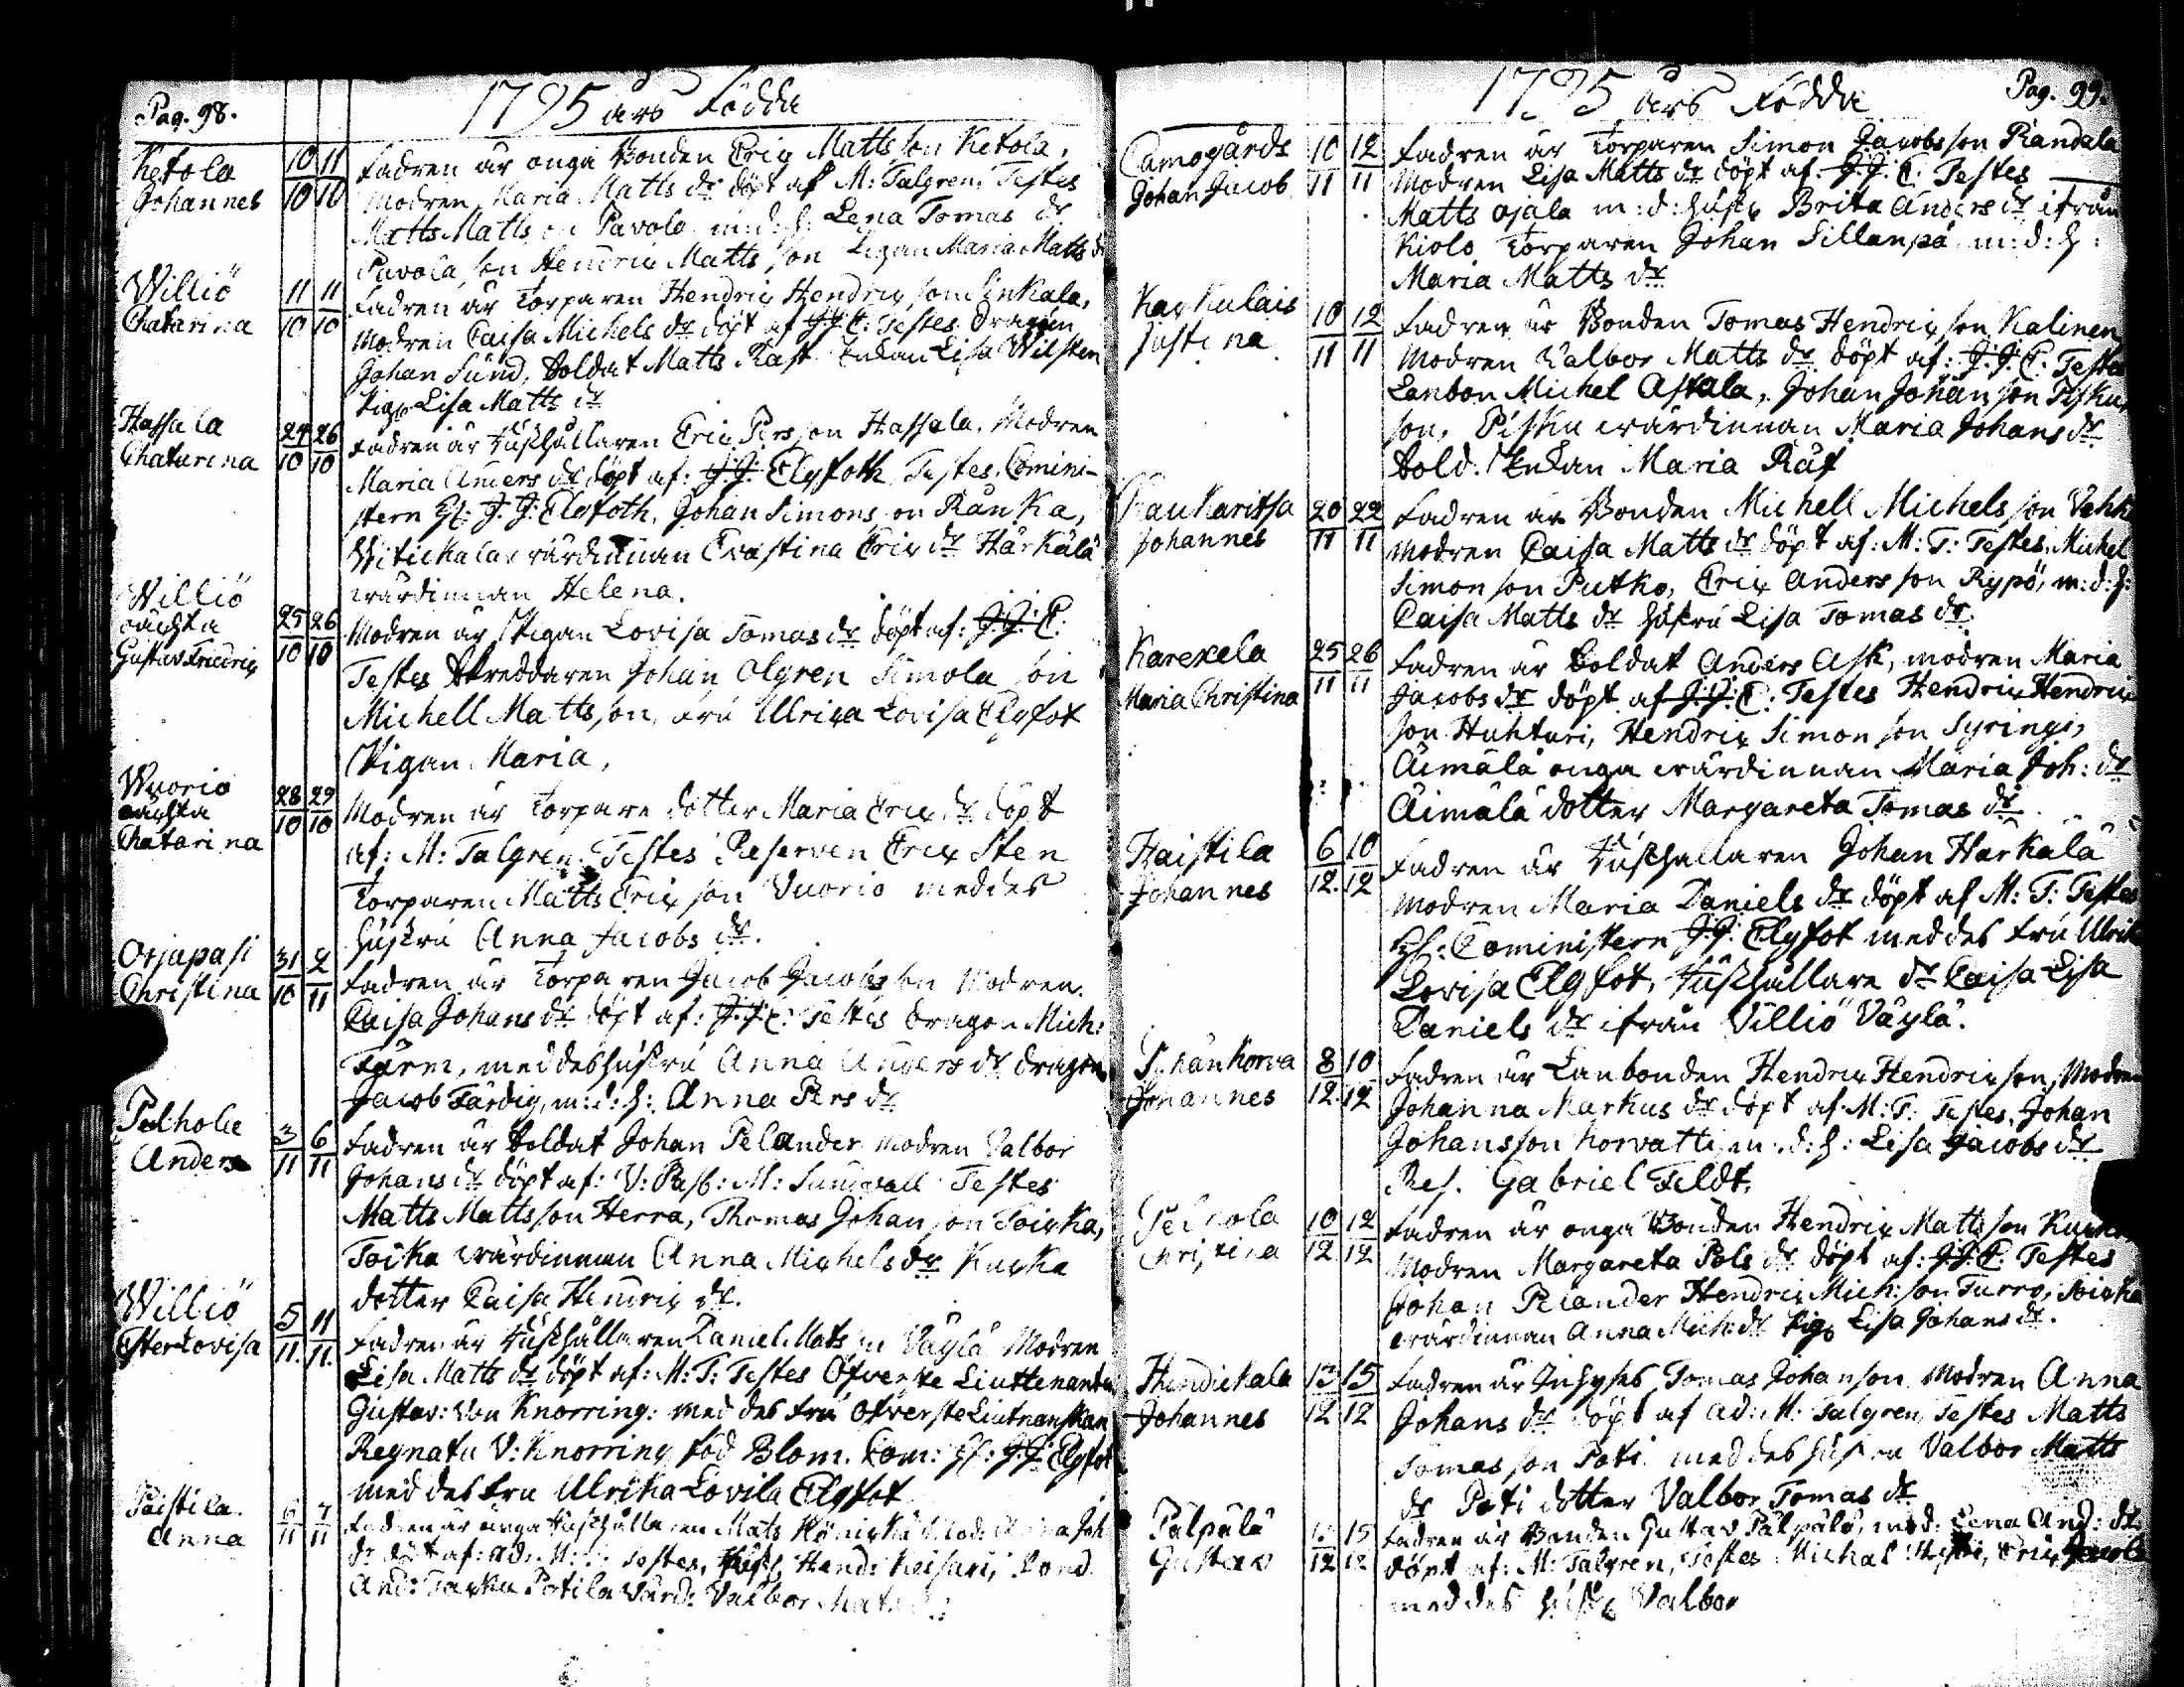 Pag. 98.
1795 års Födda
Ketola 10/10 11/10 Fadren är unga Bonden Eric Mattsson Ketola,
Johannes Modren Maria Matts dr döpt af M: Talgren. Testes
Matts Mattsson Pavola m: d: h: Lena Tomas dr
Pavola son Hendric Mattsson Pigan Maria Matts dr
Williö 11/10 11/10 Fadren är Torparen Hendric Hendricsson Sinkala,
Chatarina Modren Caisa Michels dr döpt af J: J: E: Testes Dragon
Johan Sund, Soldat Matts Rast Enkan Lisa Wilsten
Pig. Lisa Matts dr
Hassala 24/10 26/10 Fadren är Rusthållaren Eric Persson Hassala, Modren
Chatarina Maria Anders dr döpt af: J: J: Elgfoth Testes, Comini-
stern H: J: J: Elgfoth, Johan Simonsson Ranka,
Witickala wärdinnan Cristina Eric dr Härkälä
wärdinnan Helena.
Williö
oächta 25/10 26/10 Modren är Pigan Lovisa Tomas dr döpt af: J: J: E:
Gustav Friedric
Testes Skreddaren Johan Olgren Simola son
Michell Mattsson, Fru Ulrica Lovisa Elgfot
Pigan Maria,
Wuorio
oächta 28/10 29/10 Modren är Torpare dotter Maria Eric dr döpt
Chatarina
af: M: Talgren. Testes Reserven Eric Sten
Torparen Matts Ericsson Vuorio med des
hustru Anna Jacobs dr.
Orjapasi 31/10 2/11 Fadren är Torparen Jacob Jacobsson Modren
Christina Caisa Johans dr döpt af: J: J: E: Testes Dragon Mich:
Färm, med des hustru Anna Anders dr Dragon
Jacob Färdig, m: d: h: Anna Pers dr
Pelhola 3/11 6/11 Fadren är Soldat Johan Pelander modren Valbor
Anders Johans dr döpt af: V: Past: M: Sundvall Testes
Matts Mattsson Herra, Thomas Johansson Toicka,
Toika wärdinnan Anna Michels dr Kucka
dotter Caisa Hendric dr.
Williö 5/11. 11/11. Fadren är Rusthållaren Daniel Matsson Väylä Modren
Ester Lovisa Lisa Matts dr döpt af: M: T: Testes Öfverste Liuttenanten
Gustav: Von Knorring: med des fru Öfverste Liutnanskan
Regnata V: Knorring föd Blom. Com: H: J: J: Elgfot
med des fru Ulrika Lovisa Elgfot
Paistila. 6/11 7/11 Fadren är unga Rusthållaren Mats Mod: Anna Joh
Anna dr döpt af: ad: M: T: Testes, Hend: Keisari, Bond
And: Tarka Potila Värd: Valbor Mats
Pag. 99.
1795 års Födda
Camogårds 10/11 12/11 Fadren är Torparen Simon Jacobsson Randala
Johan Jacob Modren Lisa Matts dr döpt af: J: J: E: Testes
Matts Ojala m: d: hustr Brita Anders dr ifrån
Kiolo Torparen Johan Sillanpä m: d: h:
Maria Matts dr
Kaykulais 10/11 12/11 Fadren är Bonden Tomas Hendricsson Kalinen
Justina Modren Valbor Matts dr döpt af: J: J: E: Testes
Lanbon Michel Astala, Johan Johansson Pisku
son, Pisku wärdinnan Maria Johans dr
Sold. Enkan Maria Räf
Kaukaritsa 20/11 22/11 Fadren är Bonden Michell Michelsson
Johannes Modren Caisa Matts dr döpt af: M: T: Testes. Michel
Simonsson Putko, Eric Andersson Rypö, m: d: h:
Caisa Matts dr hustru Lisa Tomas dr.
Karexela 25/11 26/11 Fadren är Soldat Anders Ask, modren Maria
Maria Christina Jacobs dr döpt af J: J: E: Testes Hendric Hendric
son Huhtari, Hendric Simonsson Syrings,
Äimälä unga wärdinnan Maria Joh: dr
Äimälä dotter Margareta Tomas dr
Haistila 6/12. 10/12 Fadren är Rusthållaren Johan Härkälä
Johannes Modren Maria Daniels dr döpt af M: T: Testes
H: Cominstern J: J: Elgfot med des fru Ulrik
Lovisa Elgfot, Rusthållare dr Caisa Lisa
Daniels dr ifrån Villiö Väylä.
8/12. 10/12 Fadren är Lanbonden Hendric Hendricsson, Modren
Johannes Johanna Markus dr döpt af M: T: Testes, Johan
Johansson Korvatti m: d: h: Lisa Jacobs dr
Res. Gabriel Feldt.
10/12 12/12 Fadren är unga Bonden Hendric Mattsson
Christina Modren Margareta Pols dr döpt af: J: J: E: Testes
Johan Pelander Hendric Mich: son Turro, Toicka
wärdinnan Anna Mich: dr Pig. Lisa Johans dr.
Handickala 13/12 15/12 Fadren är Inhyses Tomas Johansson Modren Anna
Johannes Johans dr döpt af ad: M: Talgren Testes Matts
Tomasson Poti med des hustru Valbor Matts
dr Poti dotter Valbor Tomas dr
Pälpälä 15/12 Fadren är Bonden Gustav Pälpälä, mod: Lena And: dr
Gustav döpt af: M: Talgren, Testes Michel Eric Jacobs
med des hustr Valbor